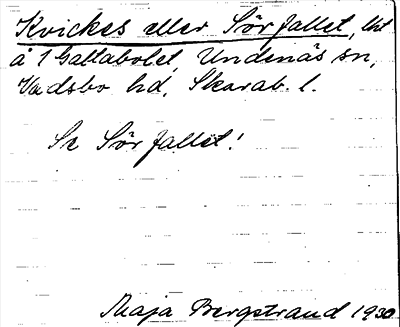 Kvickes eller Sörfallet, lht
å 1 Gattabolet, Undenäs sn,
Vadsbo hd, Skarab. l.
Se Sörfallet!
Maja Bergstrand 1930